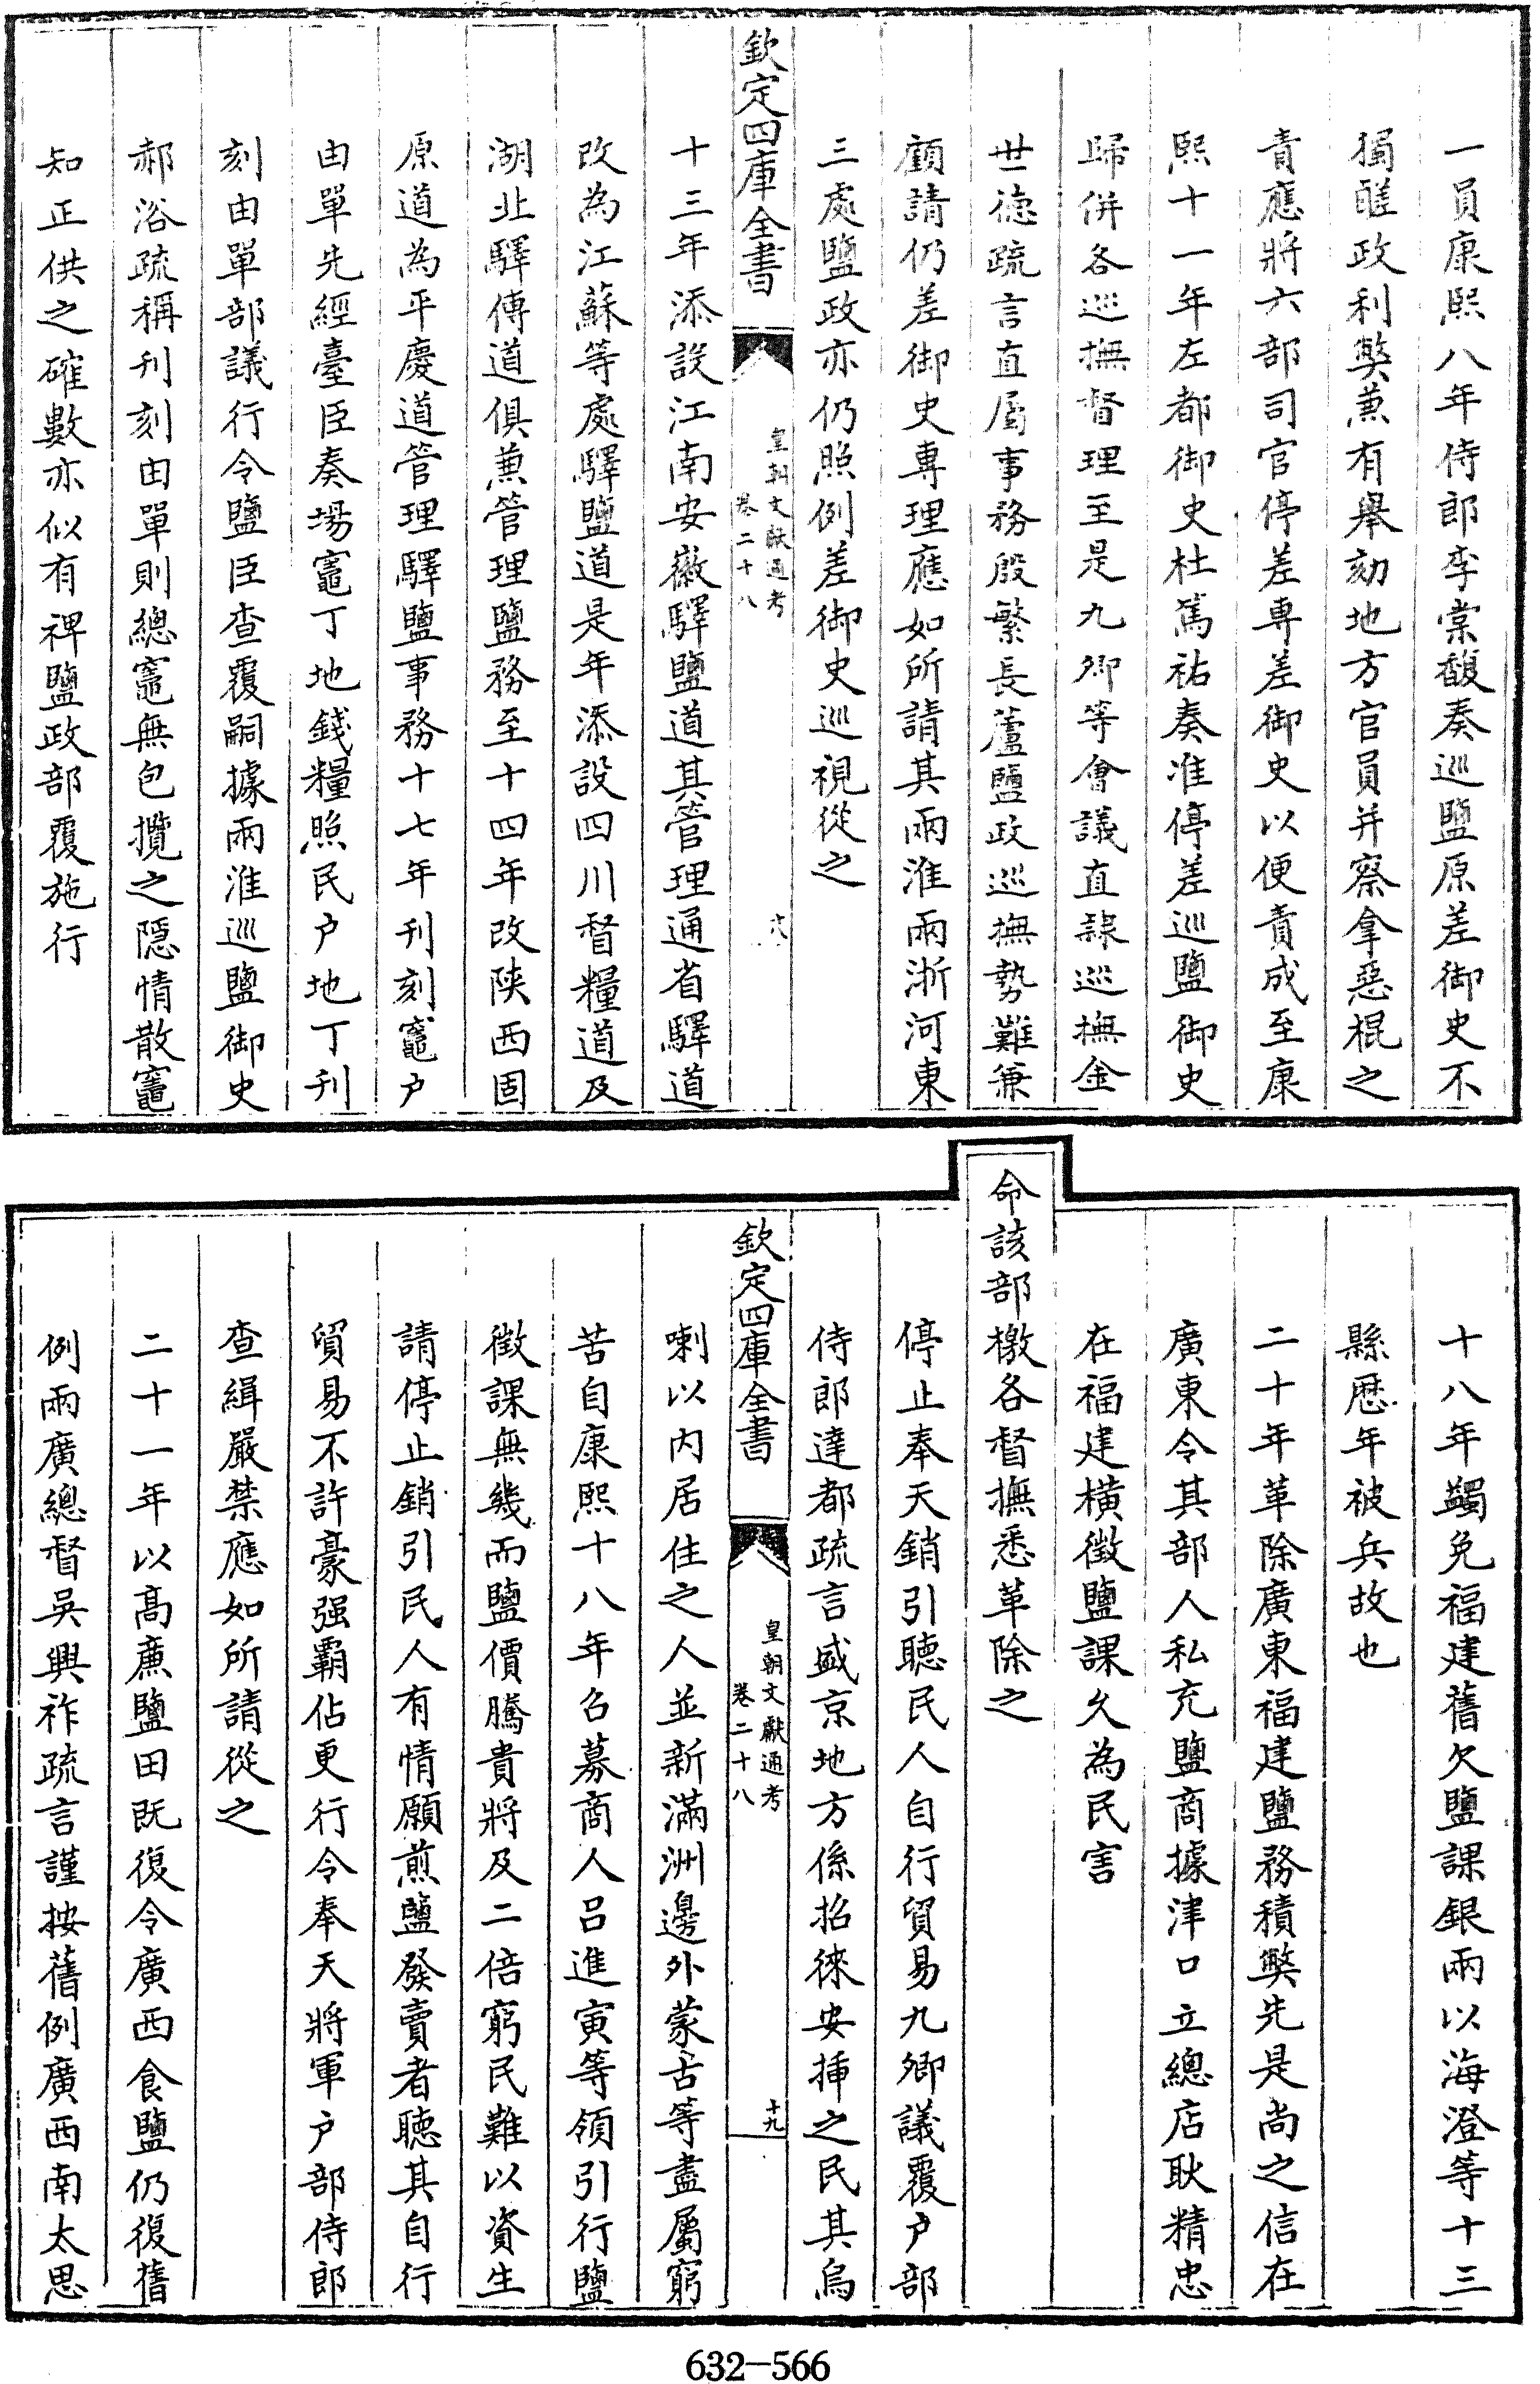 一員康熙八年侍郎李棠馥奏巡鹽原差御史不
獨鹺政利獘蒸有舉劾地方官員并察拿惡棍之
責應將六部司官停差專差御史以便責成至康
熙十一年左都御史杜篤祐奏准停差巡鹽御史
歸併各巡撫督理至是九卿等會議直隸巡撫金
世德疏言直屬事務殷繁長蘆鹽政巡撫勢難兼
顧請仍差御史專理應如所請其兩淮兩浙河東
三處鹽政亦仍照例差御史巡視從之
欽定四庫全書
皇朝文獻通考
卷二十八
十三年添設江南安徽驛鹽道其管理通省驛道
改為江蘇等處驛鹽道是年添設四川督糧道及
湖北驛傳道俱兼管理鹽務至十四年改陜西固
原道為平慶道管理驛鹽事務十七年刊刻竈户
由單先經臺臣奏塲竈丁地錢糧照民户地丁刊
刻由單部議行令鹽臣查覆嗣據兩淮巡鹽御史
郝浴疏稱刊刻由單則總竈無包攬之隱情散竈
知正供之確數亦似有裨鹽政部覆施行
十八年蠲免福建舊欠鹽課銀兩以海澄等十三
縣歴年被兵故也
二十年革除廣東福建鹽務積獘先是尚之信在
廣東令其部人私充鹽商據津口立總店耿精忠
在福建橫徵鹽課久為民害
命該部檄各督撫悉革除之
停止奉天銷引聽民人自行貿易九卿議覆户部
侍郎達都疏言盛京地方係招徠安揷之民其烏
欽定四庫全書
皇朝文獻通考
卷二十八
十九
喇以内居住之人並新滿洲邊外蒙古等盡屬窮
苦自康熙十八年召募商人吕進寅等領引行鹽
徵課無幾而鹽價騰貴將及二倍窮民難以資生
請停止銷引民人有情願煎鹽發賣者聽其自行
貿易不許豪强霸佔更行令奉天將軍户部侍郎
查緝嚴禁應如所請從之
二十一年以髙亷鹽田既復令廣西食鹽仍復舊
例兩廣總督吳興祚疏言謹按舊例廣西南太思
632-566